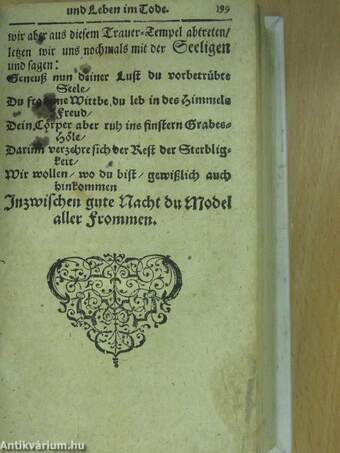 und Leben im Tode. 199
wir aber aus diesem Trauer-Tempel abtreten/
letzen wir uns nochmals mit der Seeligen
und sagen:
Geneuß nun deiner Lust du vorbetrübte
Seele/
Du fromme Wittbe/ du leb in des Himmels
Freud/
Dein Cörper aber ruh ins finstern Grabes-
Höle/
Darinn verzehre sich der Rest der Sterblig-
keit/
Wir wollen/ wo du bist/ gewißlich auch
hinkommen
Inzwischen gute Nacht du Model
aller Frommen.
Antikvárium.hu